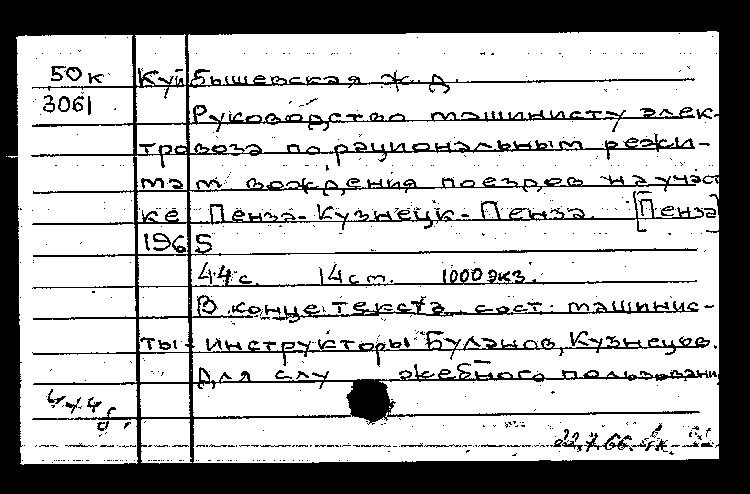 50к Куйбышевская ж.д.
3061 Руководство машинисту элек-
тровоза по рациональным режи-
мам вождения поездов на участ
ке Пенза-Кузнецк-Пенза. [Пенза]
1965
44 с. 14 см. 1000 экз.
В конце текста сост. машинис-
ты-инструкторы Буланов, Кузнецов.
Для служебного пользовани
22.7.66.